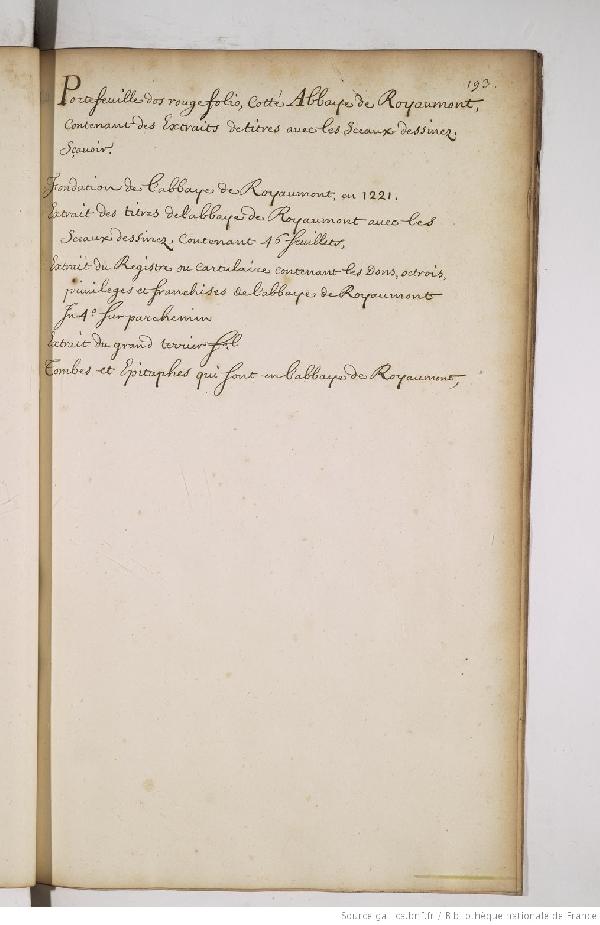 193.
Portefeuille dos rouge folio, Cotté Abbaye de Royaumont,
Contenant des Extraits de titres avec les Sceaux dessinez,
Sçavoir.
Fondation de l'abbaye de Royaumont, en 1221.
Extrait des titres de l'abbaye de Royaumont avec les
Sceaux dessinez, Contenant 46 feuillets,
Extrait du Registre ou Cartulaire contenant les Dons, octrois,
privileges et franchises de l'abbaye de Royaumont
In 4º sur parchemin
Extrait du grand terrier
Tombes et Epitaphes qui sont en l'abbaye de Royaumont,
Source gallica.bnf.fr / Bibliothèque nationale de France